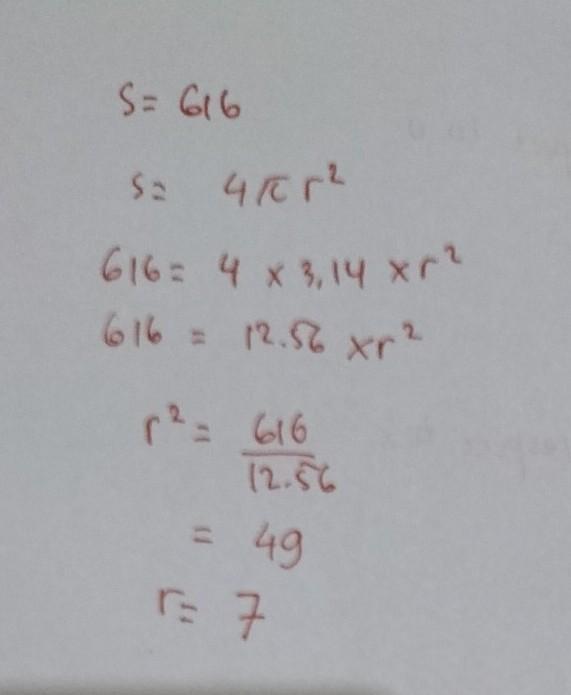 S= 616
S= 4πr²
616= 4 × 3,14 ×r²
616 = 12.56 ×r²
r²= 616
12.56
= 49
r= 7